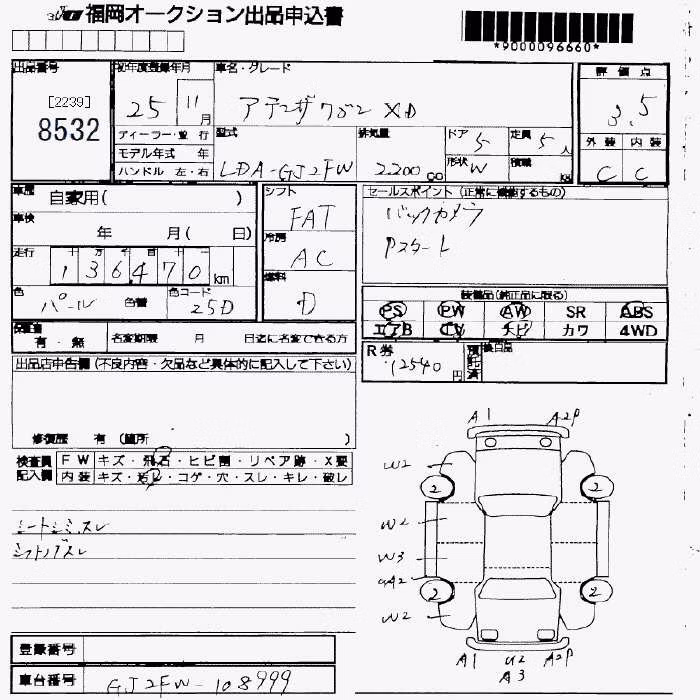 福岡オークション出品申込書
*9000096660*
出品番号 初年度登録年月 車名・グレード 評価点
[2239]
8532
25 11月 アテンザワゴン XD 3.5
ディーラー・並行 型式 排気量 ドア 5 定員 5人 外装 内装
モデル年式 年 LDA-GJ2FW 2200cc 形状 W 積載 kg C C
ハンドル 左・右
車歴 自家用( ) シフト FAT セールスポイント (正常に機能するもの)
車検 年 月( 日) 冷房 AC バックカメラ
Pスタート
走行 136470km
色 パール 色替 色コード 25D 燃料 D
装備品(純正品に限る)
PS PW AW SR ABS
エアB TV ナビ カワ 4WD
保証書 有・無 名変期限 月 日迄に名変できる方
R券 12540円 預託済 後日品
出品店申告欄 (不良内容・欠品など具体的に記入して下さい)
修復歴 有 (箇所 )
検査員記入欄 FW キズ・飛石・ヒビ割・リペア跡・X要
内装 キズ・汚れ・コゲ・穴・スレ・キレ・破レ
シートシミ、スレ
シフトノブスレ
A1 A2P
U2
2 2
U2
U3
A2
2 2
U2
A1 U2 A2P
A3
登録番号
車台番号 GJ2FW-108999